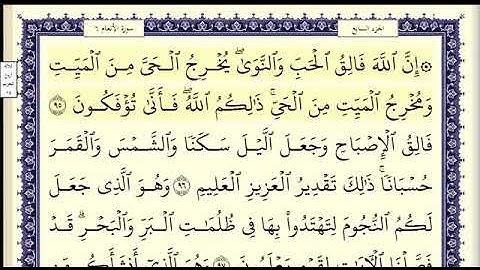 الجزء السابع
سورة الأنعام ٦
۞ إِنَّ ٱللَّهَ فَالِقُ ٱلْحَبِّ وَٱلنَّوَىٰ ۖ يُخْرِجُ ٱلْحَىَّ مِنَ ٱلْمَيِّتِ
وَمُخْرِجُ ٱلْمَيِّتِ مِنَ ٱلْحَىِّ ۚ ذَٰلِكُمُ ٱللَّهُ ۖ فَأَنَّىٰ تُؤْفَكُونَ ٩٥
فَالِقُ ٱلْإِصْبَاحِ وَجَعَلَ ٱلَّيْلَ سَكَنًا وَٱلشَّمْسَ وَٱلْقَمَرَ
حُسْبَانًا ۚ ذَٰلِكَ تَقْدِيرُ ٱلْعَزِيزِ ٱلْعَلِيمِ ٩٦ وَهُوَ ٱلَّذِى جَعَلَ
لَكُمُ ٱلنُّجُومَ لِتَهْتَدُوا۟ بِهَا فِى ظُلُمَٰتِ ٱلْبَرِّ وَٱلْبَحْرِ ۗ قَدْ
فَصَّلْنَا ٱلْءَايَٰتِ لِقَوْمٍ يَعْلَمُونَ ٩٧ وَهُوَ ٱلَّذِىٓ أَنشَأَكُم